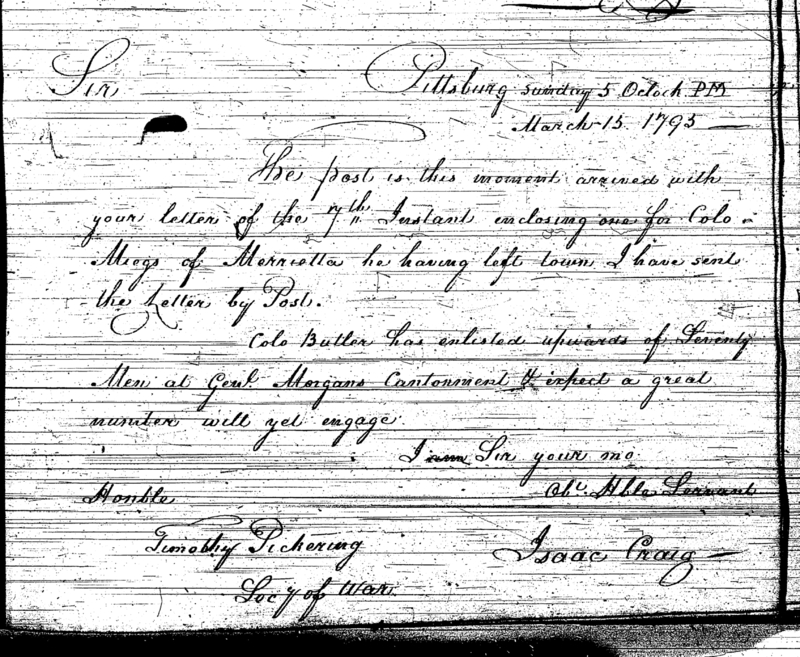 Sir Pittsburg sunday 5 Oclock PM
March 15. 1795
The post is this moment arrived with
your letter of the 7th Instant enclosing one for Colo
Miegs of Merrietta he having left town I have sent
the Letter by Post.
Colo Butler has enlisted upwards of Seventy
Men at Genl. Morgans Cantonment I expect a great
number will yet engage
I am Sir your mo
Obt. Hble Servant
Honble
Timothy Pickering Isaac Craig
Secy of War